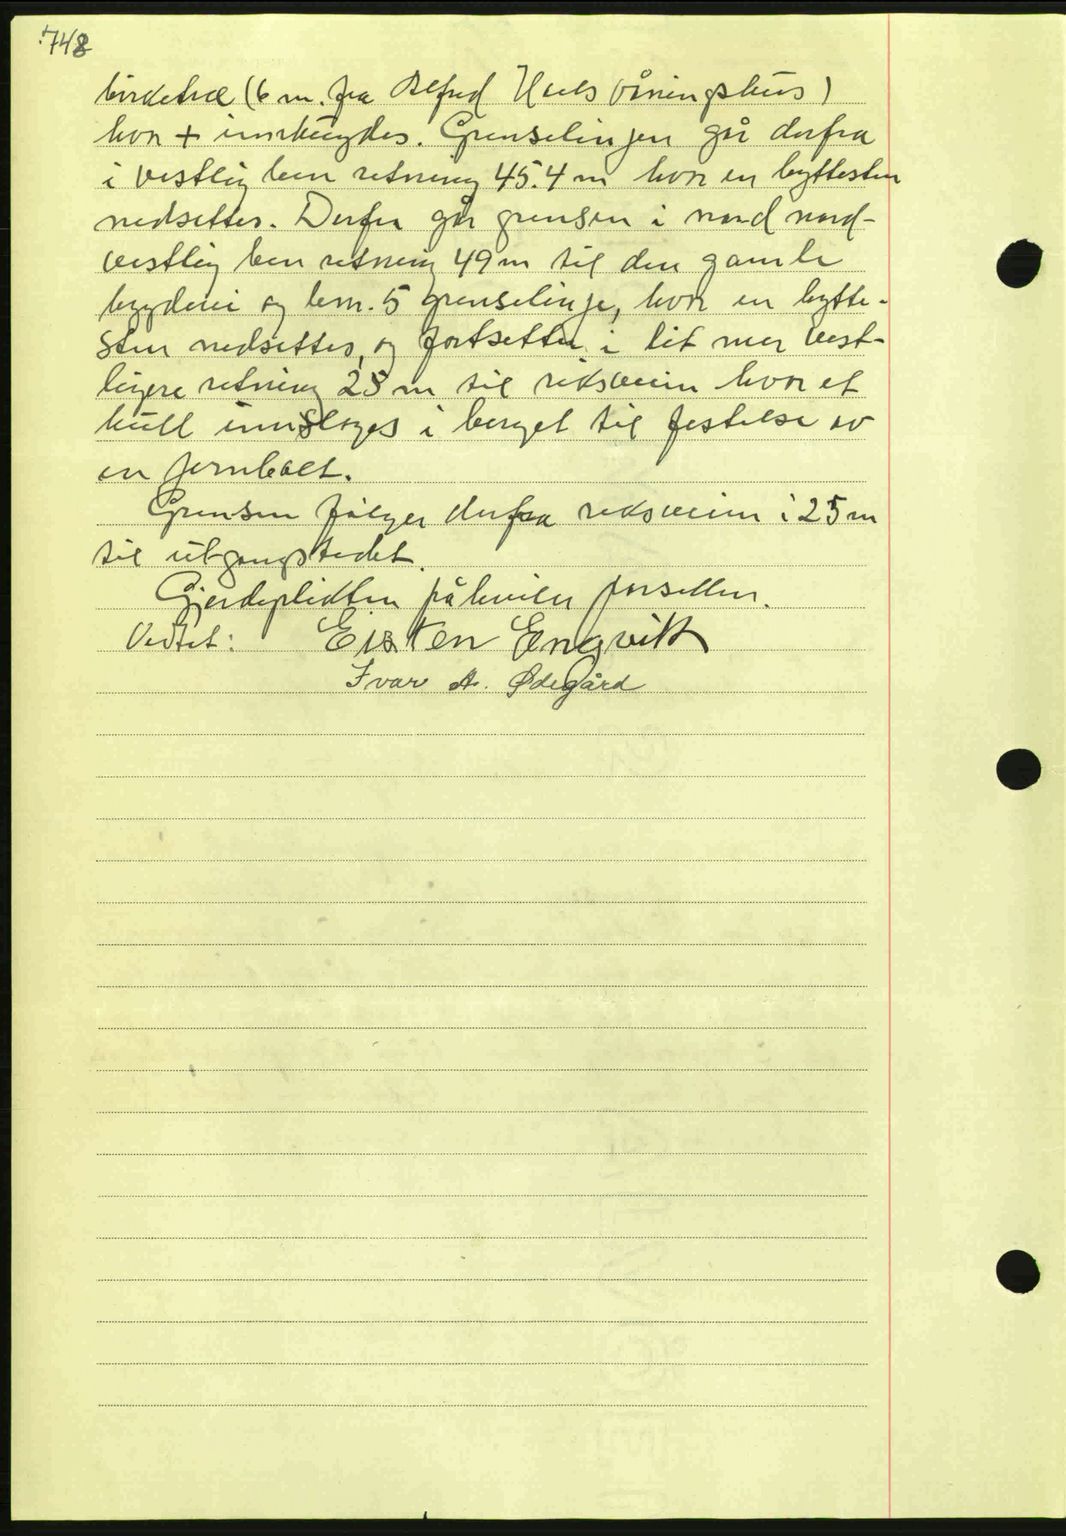 748
birketræ (6 m. fra Alfred Hals våningshus)
hvor + innhugges. Grenselinjen går derfra
i vestlig ben retning 45.4 m hvor en byttesten
nedsettes. Derfra går grensen i nord nord-
vestlig ben retning 49 m til den gamle
og brn. 5 grenselinje, hvor en bytte-
sten nedsettes, og fortsetter i lit mer vest-
ligere retning 25 m til riksveien hvor et
hull innslages i berget til festelse av
en jernbolt.
Grensen følger derfra riksveien i 25 m
til utgangstedet.
Gjerdeplikten påhviler parsellen.
Vedtet: Eisten Engvik
Ivar A. Ødegård